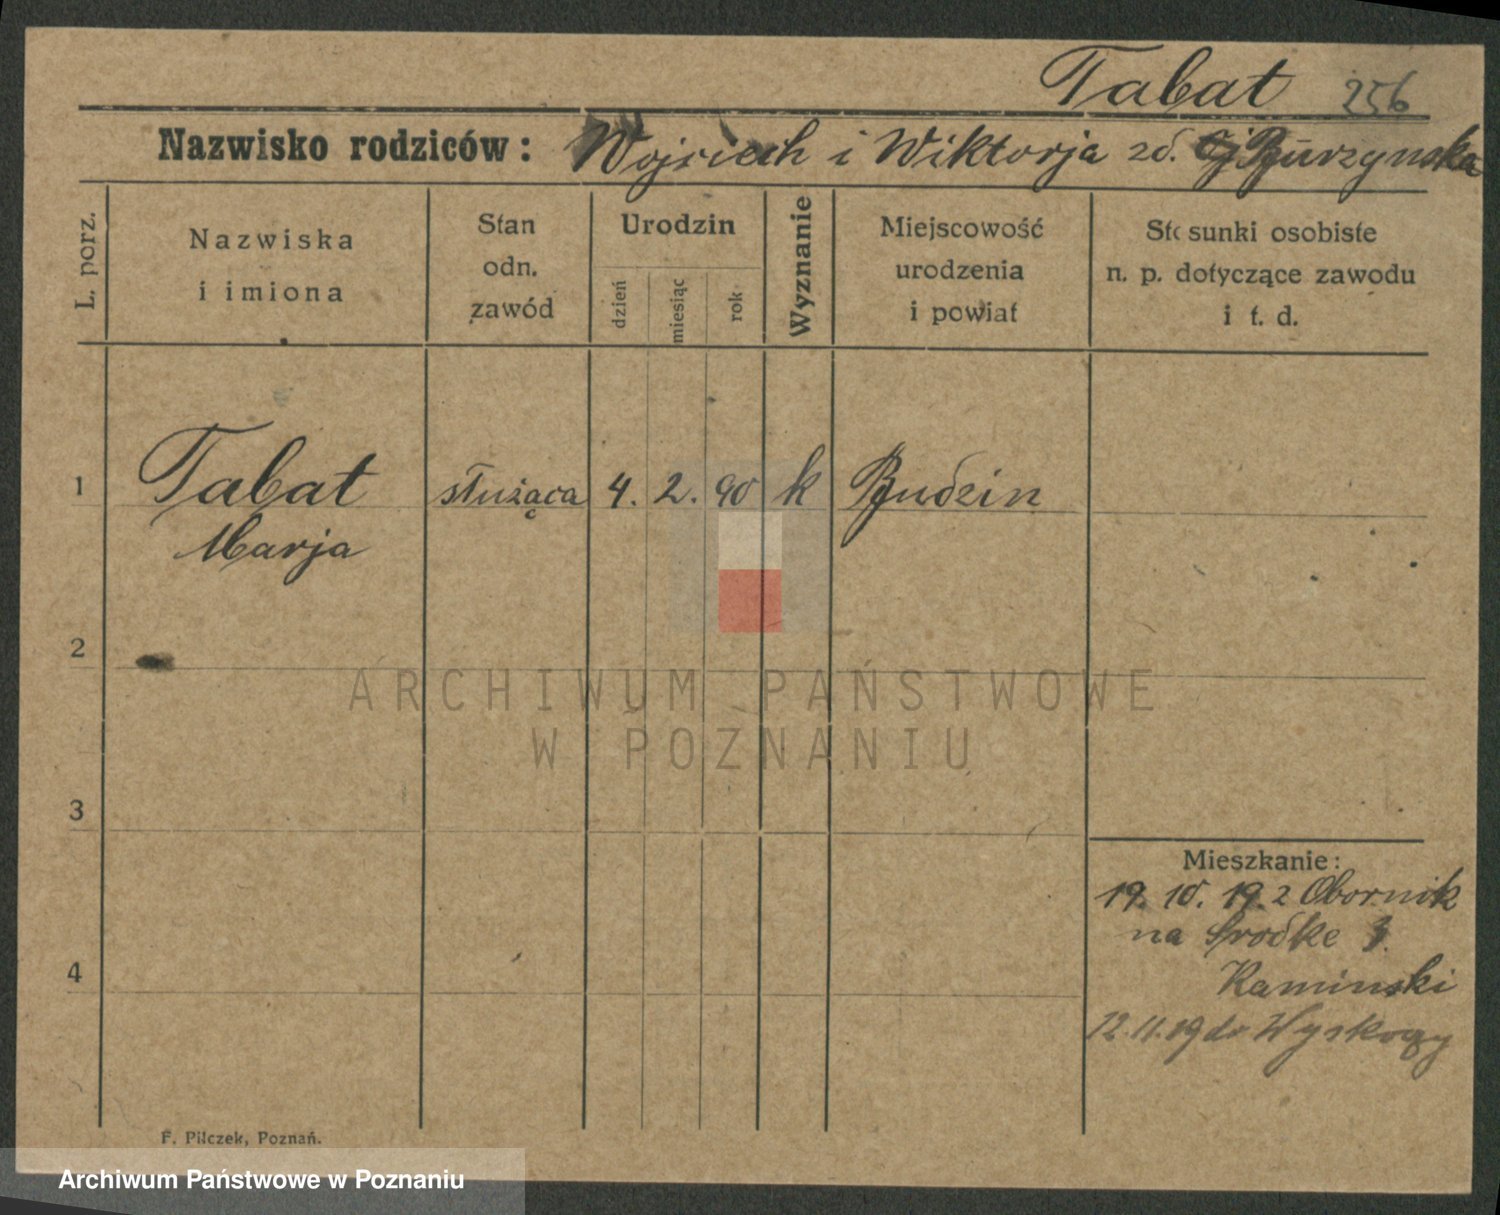 Tabat 256
Nazwisko rodziców: Wojciech i Wiktorja zd. Burzynska
L. porz.
Nazwiska
i imiona
Stan
odn.
zawód
Urodzin
dzień
miesiąc
rok
Wyznanie
Miejscowość
urodzenia
i powiat
Stosunki osobiste
n. p. dotyczące zawodu
i t. d.
1 Tabat służąca 4. 2. 90 k Budzin
Marja
2
ARCHIWUM PAŃSTWOWE
W POZNANIU
3
Mieszkanie:
19. 10. 19. z Obornik
na Srodke 3.
4
Kaminski
12.11.19 do
F. Pilczek, Poznań.
Archiwum Państwowe w Poznaniu